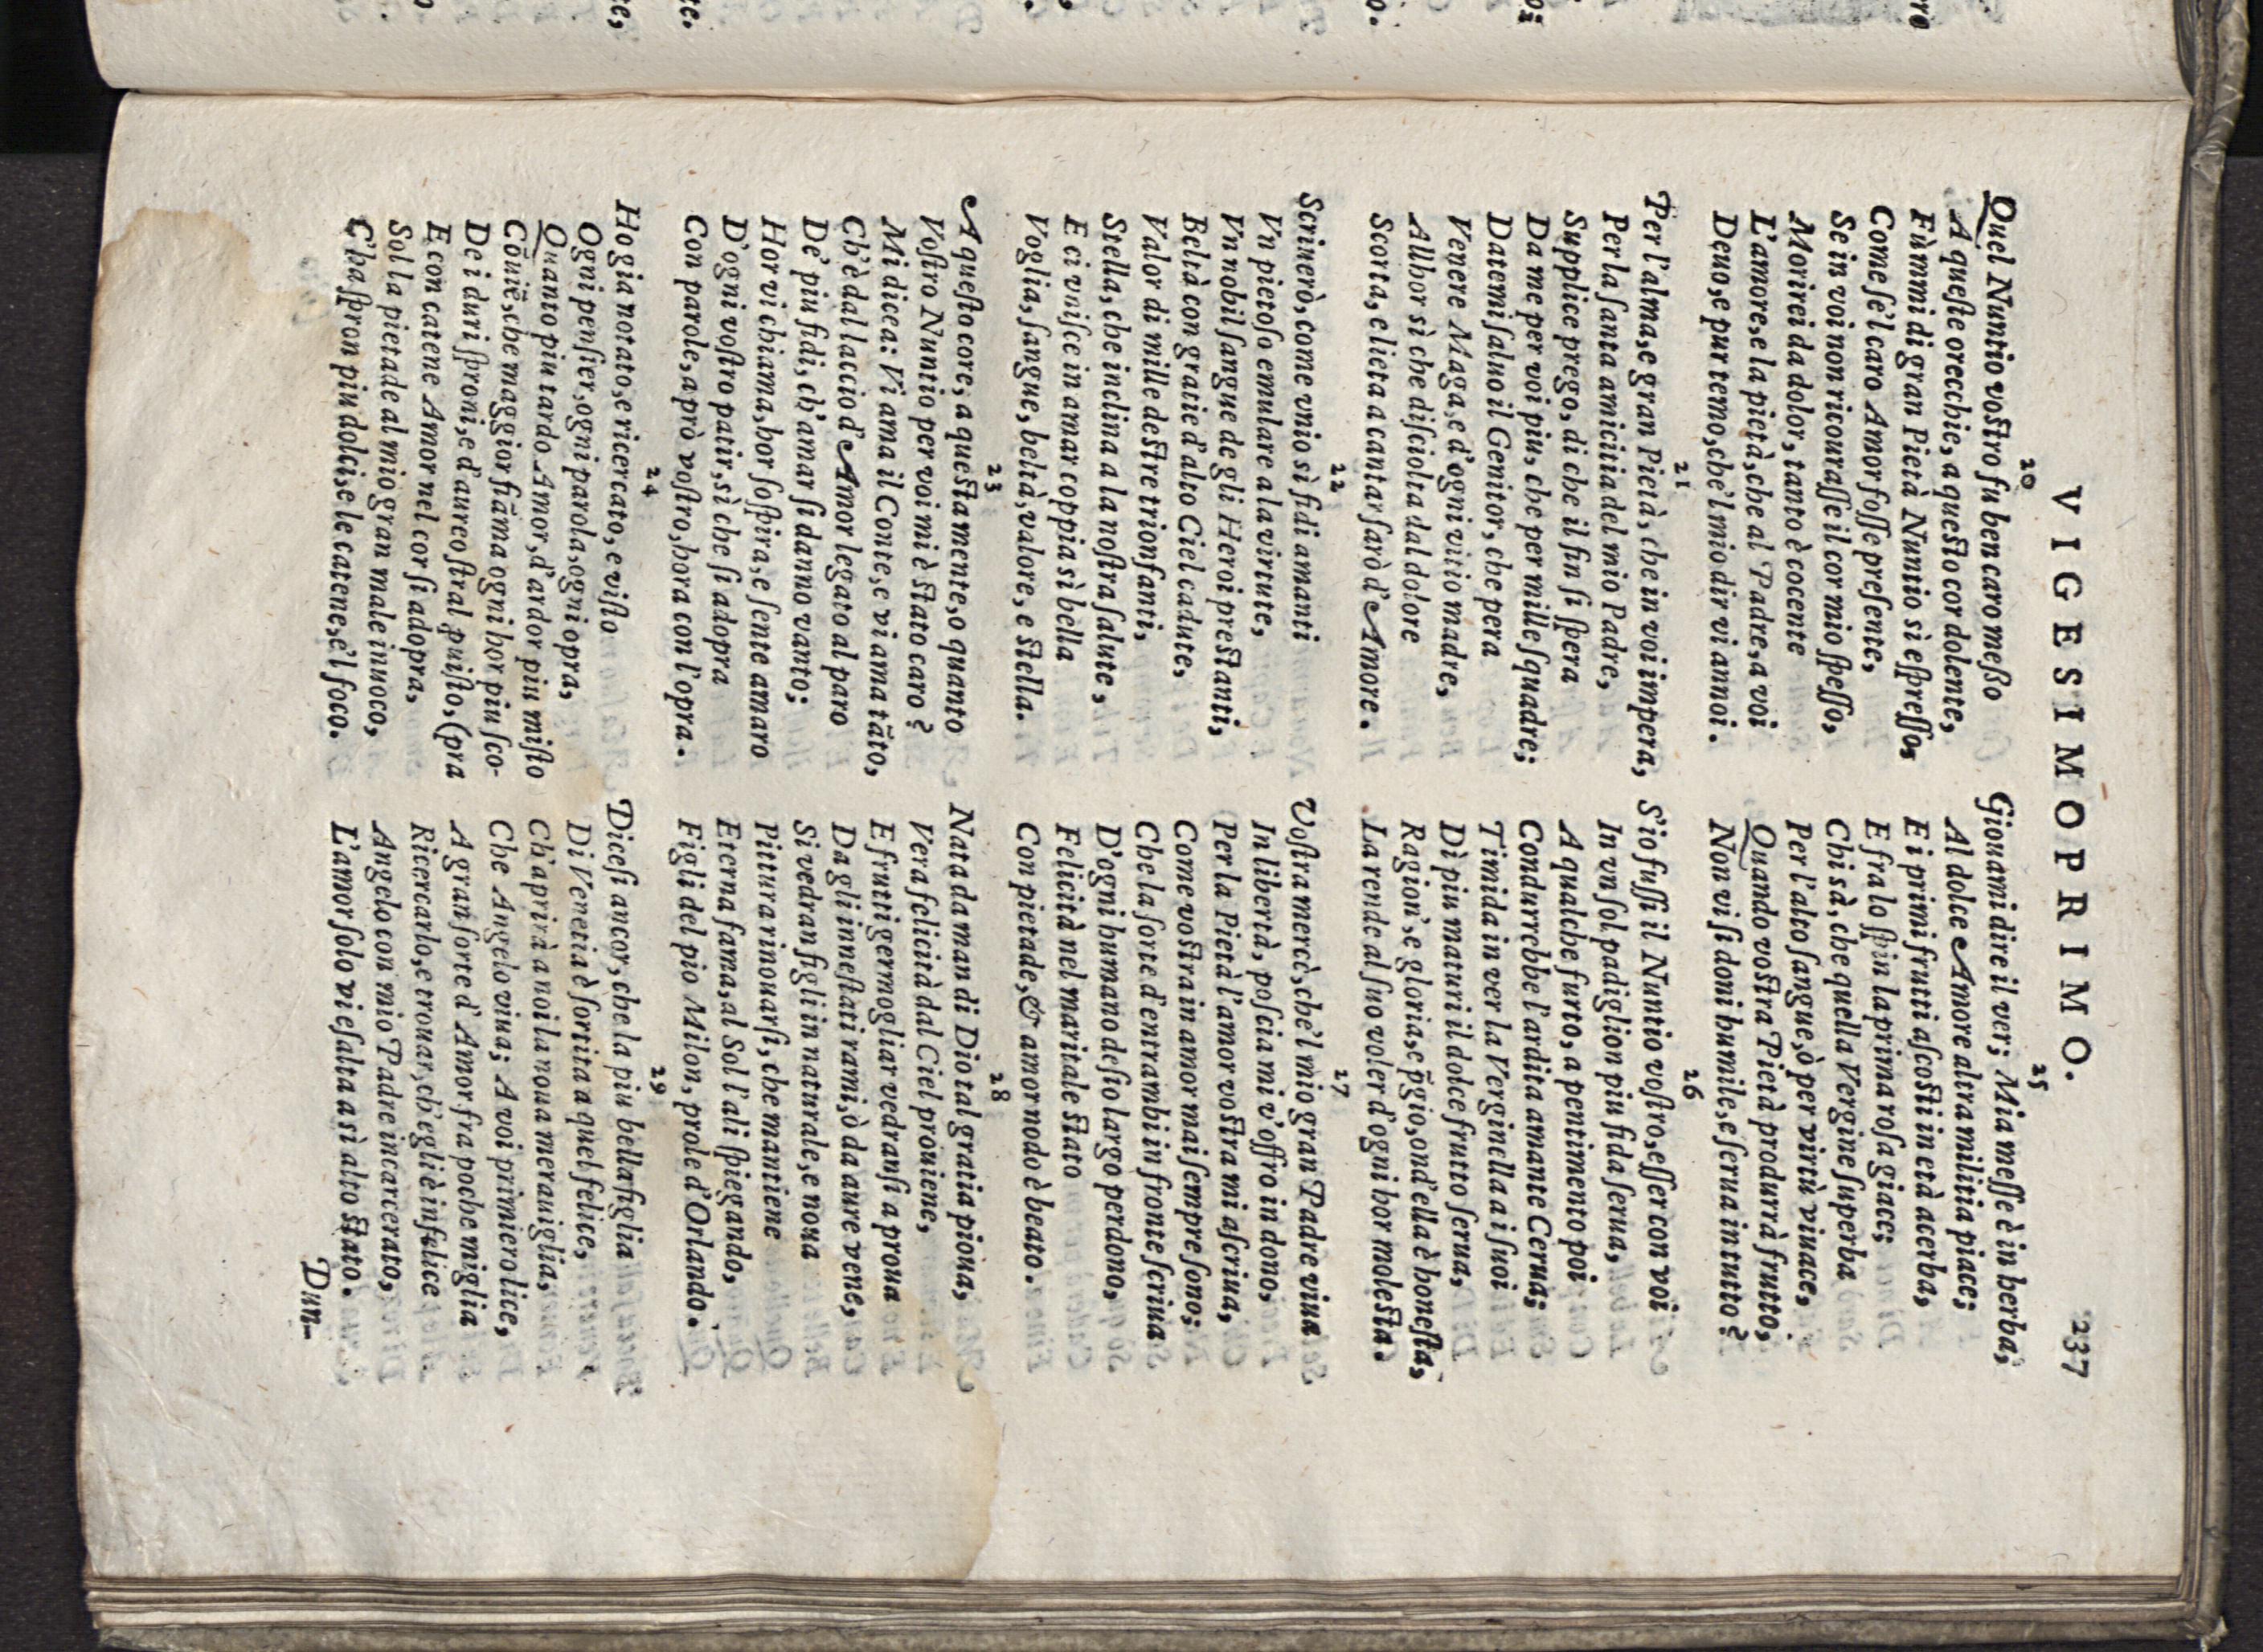 VIGESIMOPRIMO. 237
20
Quel Nuntio vostro fu ben caro messo
A queste orecchie, a questo cor dolente,
Fùmmi di gran Pietà Nuntio sì espresso,
Come se'l caro Amor fosse presente,
Se in voi non ricourasse il cor mio spesso,
Morirei da dolor, tanto è cocente
L'amore, e la pietà, che al Padre, a voi
Deuo, e pur temo, che'l mio dir vi annoi.
21
Per l'alma, e gran Pietà, che in voi impera,
Per la santa amicitia del mio Padre,
Supplice prego, di che il fin si spera
Da me per voi piu, che per mille squadre;
Datemi saluo il Genitor, che pera
Venere Maga, e d'ogni vitio madre,
Allhor sì che disciolta dal dolore
Scorta, e lieta a cantar sarò d'Amore.
22
Scriuerò, come vnio sì fidi amanti
Vn pietoso emulare a la virtute,
Vn nobil sangue de gli Heroi prestanti,
Beltà con gratie d'alto Ciel cadute,
Valor di mille destre trionfanti,
Stella, che inclina a la nostra salute,
E ci vnisce in amar coppia sì bella
Voglia, sangue, beltà, valore, e stella.
23
A questo core, a questa mente, o quanto
Vostro Nuntio per voi mi è stato caro?
Mi dicea: Vi ama il Conte, e vi ama tãto,
Ch'è dal laccio d'Amor legato al paro
De' piu fidi, ch'amar si danno vanto;
Hor vi chiama, hor sospira, e sente amaro
D'ogni vostro patir, sì che si adopra
Con parole, a prò vostro, hora con l'opra.
24
Ho gia notato, e ricercato, e visto
Ogni pensier, ogni parola, ogni opra,
Quanto piu tardo Amor, d'ardor piu misto
Cõuiẽ, che maggior fiãma ogni hor piu sco-
De i duri sproni, e d'aureo stral puisto, (pra
E con catene Amor nel cor si adopra,
Sol la pietade al mio gran male inuoco,
C'ha spron piu dolci, e le catene, e'l foco.
25
Giouami dire il ver; Mia messe è in herba,
Al dolce Amore altra militia piace;
E i primi frutti ascosti in età acerba,
E fra lo spin la prima rosa giace;
Chi sà, che quella Vergine superba
Per l'alto sangue, ò per virtù viuace,
Quando vostra Pietà produrrà frutto,
Non vi si doni humile, e serua in tutto?
26
S'io fussi il Nuntio vostro, esser con voi
In vn sol padiglion piu fida serua,
A qualche furto, a pentimento poi
Condurrebbe l'ardita amante Cerua;
Timida in ver la Verginella a i suoi
Dì piu maturi il dolce frutto serua,
Ragion', e gloria, e p̃gio, ond'ella è honesta,
La rende al suo voler d'ogni hor molesta.
27
Vostra mercè, che'l mio gran Padre viua
In libertà, poscia mi v'offro in dono,
Per la Pietà l'amor vostra mi ascriua,
Come vostra in amor mai sempre sono;
Che la sorte d'entrambi in fronte scriua
D'ogni humano desio largo perdono,
Felicità nel maritale stato
Con pietade, & amor nodo è beato.
28
Nata da man di Dio tal gratia pioua,
Vera felicità dal Ciel prouiene,
E frutti germogliar vedransi a proua
Da gli innestati rami, ò da aure vene,
Si vedran figli in naturale, e noua
Pittura rinouarsi, che mantiene
Eterna fama, al Sol l'ali spiegando,
Figli del pio Milon, prole d'Orlando.
29
Dicesi ancor, che la piu bella figlia
Di Venetia è sortita a quel felice,
Ch'aprirà a noi la noua merauiglia,
Che Angelo viua; A voi primiero lice,
A gran sorte d'Amor fra poche miglia
Ricercarlo, e trouar, ch'egli è infelice
Angelo con mio Padre incarcerato,
L'amor solo vi esalta a sì alto stato.
Dun-